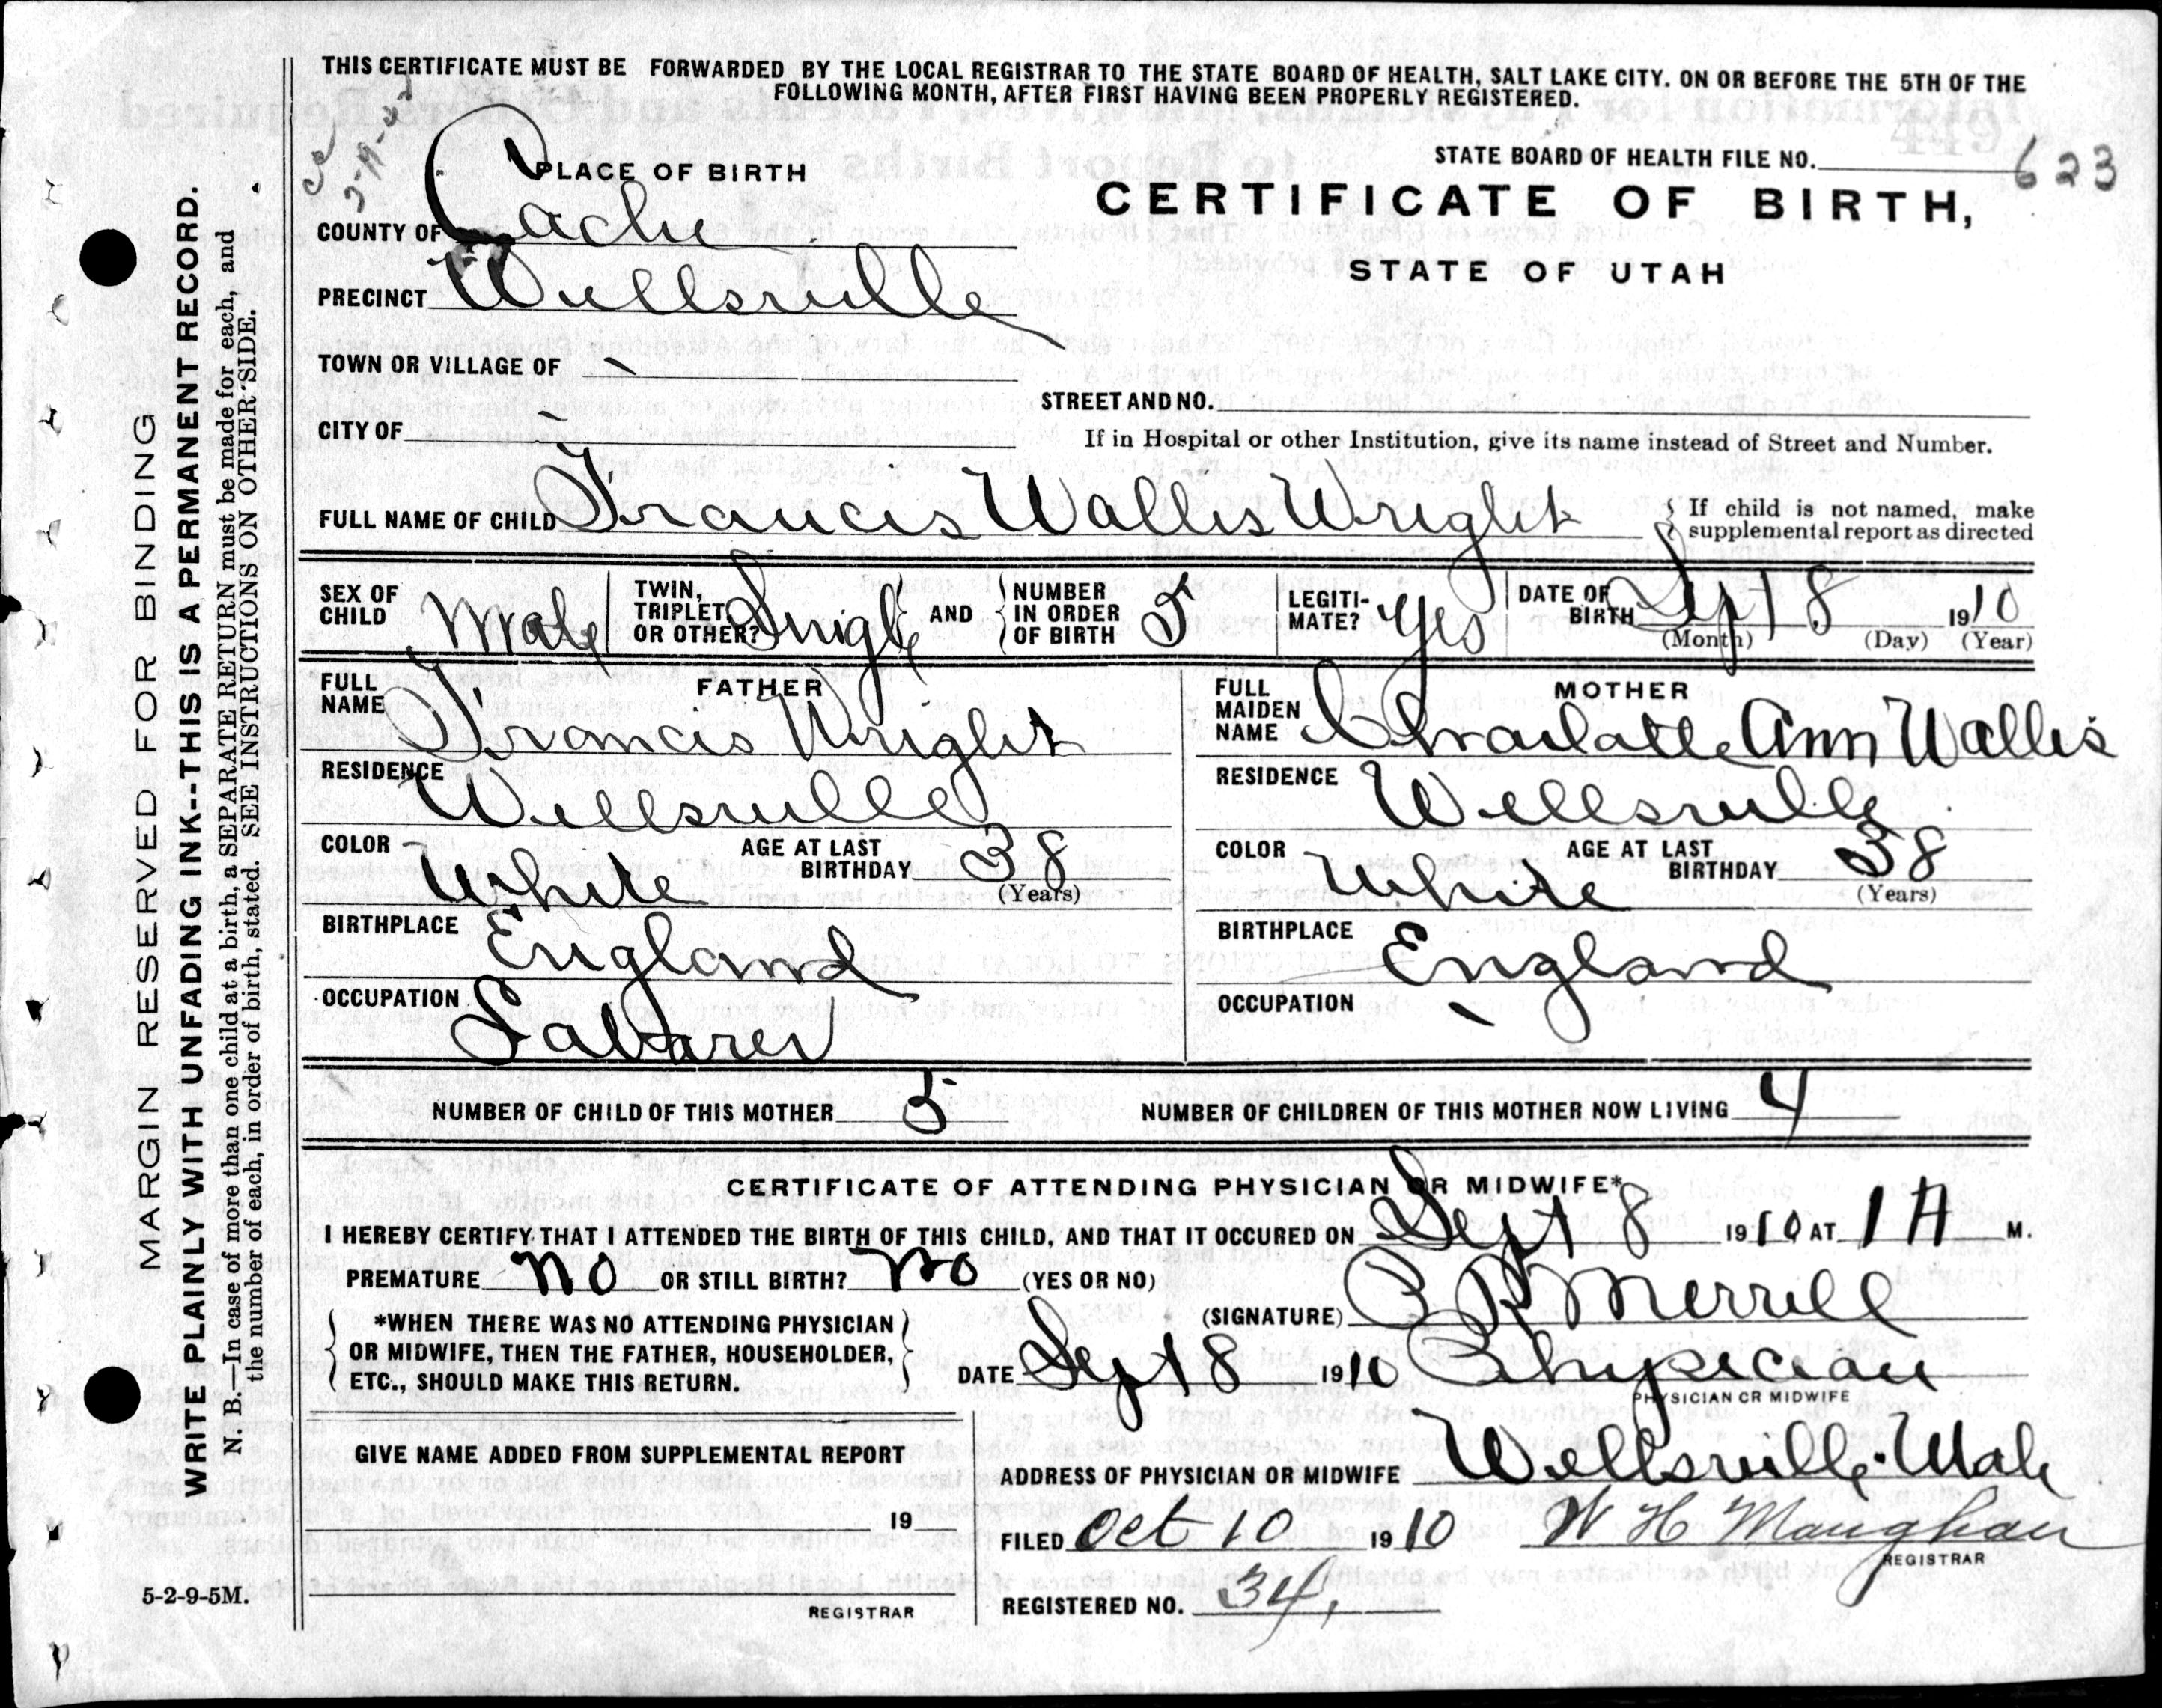 THIS CERTIFICATE MUST BE FORWARDED BY THE LOCAL REGISTRAR TO THE STATE BOARD OF HEALTH, SALT LAKE CITY. ON OR BEFORE THE 5TH OF THE
FOLLOWING MONTH, AFTER FIRST HAVING BEEN PROPERLY REGISTERED.
PLACE OF BIRTH
STATE BOARD OF HEALTH FILE NO. 623
CERTIFICATE OF BIRTH,
STATE OF UTAH
COUNTY OF Cache
PRECINCT Wellsville
TOWN OR VILLAGE OF -
STREET AND NO.
CITY OF -
If in Hospital or other Institution, give its name instead of Street and Number.
FULL NAME OF CHILD Francis Wallis Wright
If child is not named, make
supplemental report as directed
SEX OF CHILD Male
TWIN, TRIPLET OR OTHER? Single
AND NUMBER IN ORDER OF BIRTH 5
LEGITI- MATE? Yes
DATE OF BIRTH Sept 8 1910
(Month) (Day) (Year)
FATHER
FULL NAME Francis Wright
RESIDENCE Wellsville
COLOR White AGE AT LAST BIRTHDAY 38
(Years)
BIRTHPLACE England
OCCUPATION Laborer
MOTHER
FULL MAIDEN NAME Charlotte Ann Wallis
RESIDENCE Wellsville
COLOR White AGE AT LAST BIRTHDAY 38
(Years)
BIRTHPLACE England
OCCUPATION -
NUMBER OF CHILD OF THIS MOTHER 5 NUMBER OF CHILDREN OF THIS MOTHER NOW LIVING 4
CERTIFICATE OF ATTENDING PHYSICIAN OR MIDWIFE*
I HEREBY CERTIFY THAT I ATTENDED THE BIRTH OF THIS CHILD, AND THAT IT OCCURED ON Sept 8 1910 AT 1 A M.
PREMATURE no OR STILL BIRTH? no (YES OR NO)
*WHEN THERE WAS NO ATTENDING PHYSICIAN
OR MIDWIFE, THEN THE FATHER, HOUSEHOLDER,
ETC., SHOULD MAKE THIS RETURN.
(SIGNATURE) Merrill
DATE Sept 8 1910 Physician
PHYSICIAN OR MIDWIFE
GIVE NAME ADDED FROM SUPPLEMENTAL REPORT
19
REGISTRAR
ADDRESS OF PHYSICIAN OR MIDWIFE Wellsville Utah
FILED Oct 10 1910 W H Maughan
REGISTRAR
REGISTERED NO. 34,
5-2-9-5M.
MARGIN RESERVED FOR BINDING
WRITE PLAINLY WITH UNFADING INK--THIS IS A PERMANENT RECORD.
N. B.—In case of more than one child at a birth, a SEPARATE RETURN must be made for each, and
the number of each, in order of birth, stated. SEE INSTRUCTIONS ON OTHER SIDE.